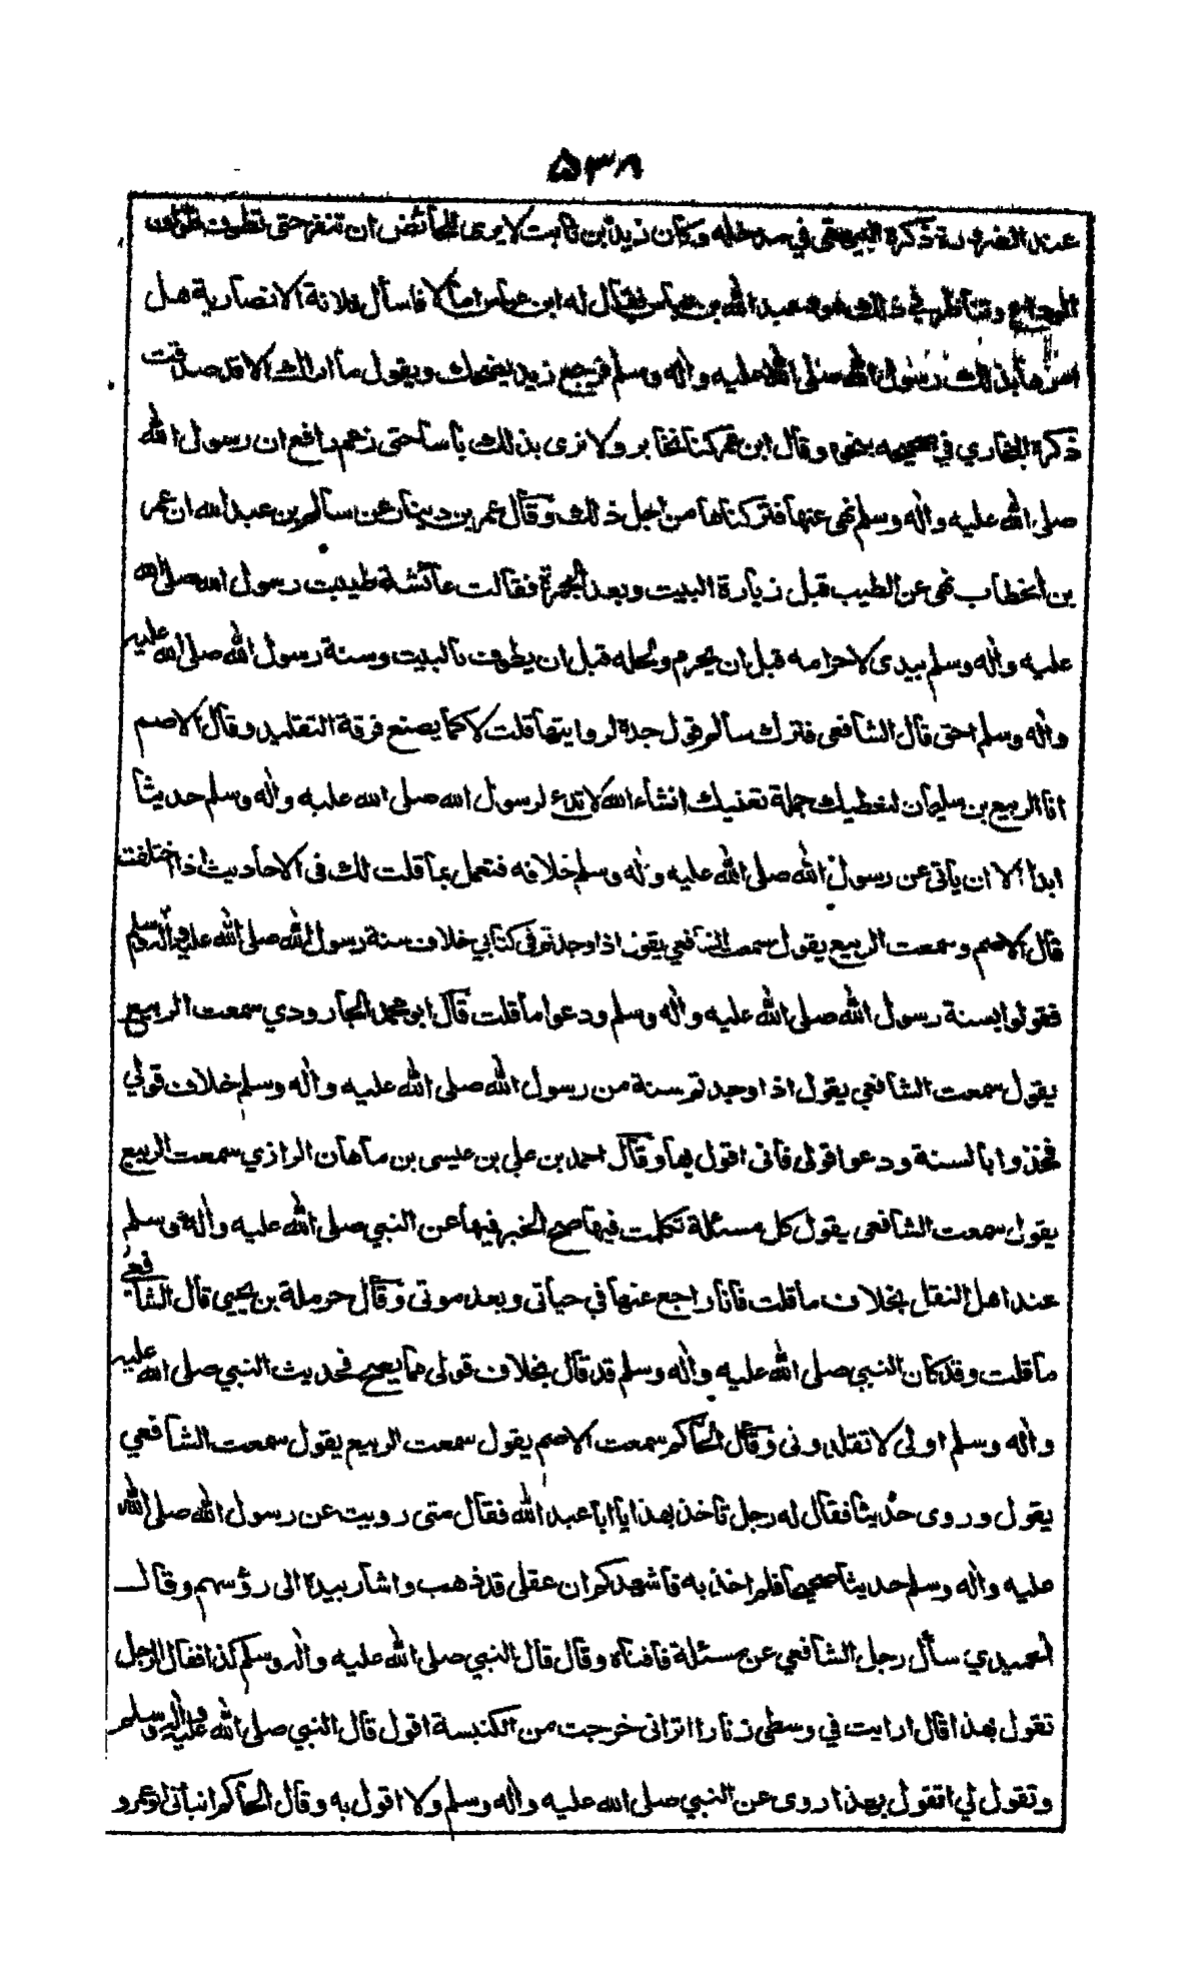 ۵۳۸
عند الضرورة ذكره البيهقي في مدخله وكان زيد بن ثابت لا يرى للحائض ان تنفر حتى تطوف طواف
الوداع وتناظر في ذلك هو وعبد الله بن عباس فقال له ابن عباس اما لا فاسأل فلانة الانصارية هل
امرها بذلك رسول الله صلى الله عليه واله وسلم فرجع زيد يضحك ويقول ما اراك الا قد صدقت
ذكره البخاري في صحيحه بنحوه وقال ابن عمر كنا نخابر ولا نرى بذلك بأسا حتى زعم رافع ان رسول الله
صلى الله عليه واله وسلم نهى عنها فتركناها من اجل ذلك وقال عمر بن دينار عن سالم بن عبد الله ان عمر
بن الخطاب نهى عن الطيب قبل زيارة البيت وبعد الجمرة فقالت عائشة طيبت رسول الله صلى الله
عليه واله وسلم بيدى لاحرامه قبل ان يحرم ولحله قبل ان يطوف بالبيت وسنة رسول الله صلى الله عليه
واله وسلم احق قال الشافعى فترك سالم قول جده لروايتها قلت لا كما يصنع فرقة التقليد وقال الاصم
انا الربيع بن سليمان لنعطيك جملة تغنيك انشاء الله لا تدع لرسول الله صلى الله عليه واله وسلم حديثا
ابدا الا ان يأتى عن رسول الله صلى الله عليه واله وسلم خلافه فتعمل بما قلت لك فى الاحاديث اذا اختلفت
قال الاصم وسمعت الربيع يقول سمعت الشافعي يقول اذا وجدتم فى كتابي خلاف سنة رسول الله صلى الله عليه واله وسلم
فقولوا بسنة رسول الله صلى الله عليه واله وسلم ودعوا ما قلت قال ابو محمد الجارودي سمعت الربيع
يقول سمعت الشافعي يقول اذا وجدتم سنة من رسول الله صلى الله عليه واله وسلم خلاف قولي
فخذوا بالسنة ودعوا قولى فانى اقول بها وقال احمد بن علي بن عيسى بن ماهان الرازي سمعت الربيع
يقول سمعت الشافعى يقول كل مسئلة تكلمت فيها صح الخبر فيها عن النبي صلى الله عليه واله وسلم
عند اهل النقل بخلاف ما قلت فانا راجع عنها في حياتى وبعد موتى وقال حرملة بن يحيى قال الشافعى
ما قلت وقد كان النبي صلى الله عليه واله وسلم قد قال بخلاف قولى مما يصح فحديث النبي صلى الله عليه
واله وسلم اولى لا تقلدونى وقال الحاكم سمعت الاصم يقول سمعت الربيع يقول سمعت الشافعي
يقول وروى حديثا فقال له رجل تأخذ بهذا يا ابا عبد الله فقال متى رويت عن رسول الله صلى الله
عليه واله وسلم حديثا صحيحا فلم اخذ به فاشهدكم ان عقلى قد ذهب واشار بيده الى رؤسهم وقال
الحميدي سأل رجل الشافعي عن مسئلة فافتاه وقال قال النبي صلى الله عليه واله وسلم كذا فقال الرجل
تقول بهذا قال ارايت في وسطى زنارا اترانى خرجت من الكنيسة اقول قال النبي صلى الله عليه واله وسلم
وتقول لي اتقول بهذا روى عن النبي صلى الله عليه واله وسلم ولا اقول به وقال الحاكم انبأنى ابو عمرو